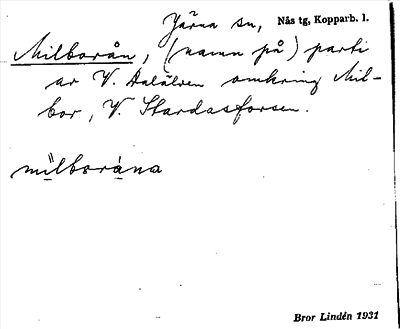 Järna sn, Nås tg, Kopparb. l.
Milborån, (namn på) parti
av V. Dalälven omkring Mil-
bor, V. Stardasforsen.
milbsrána
Bror Lindén 1931